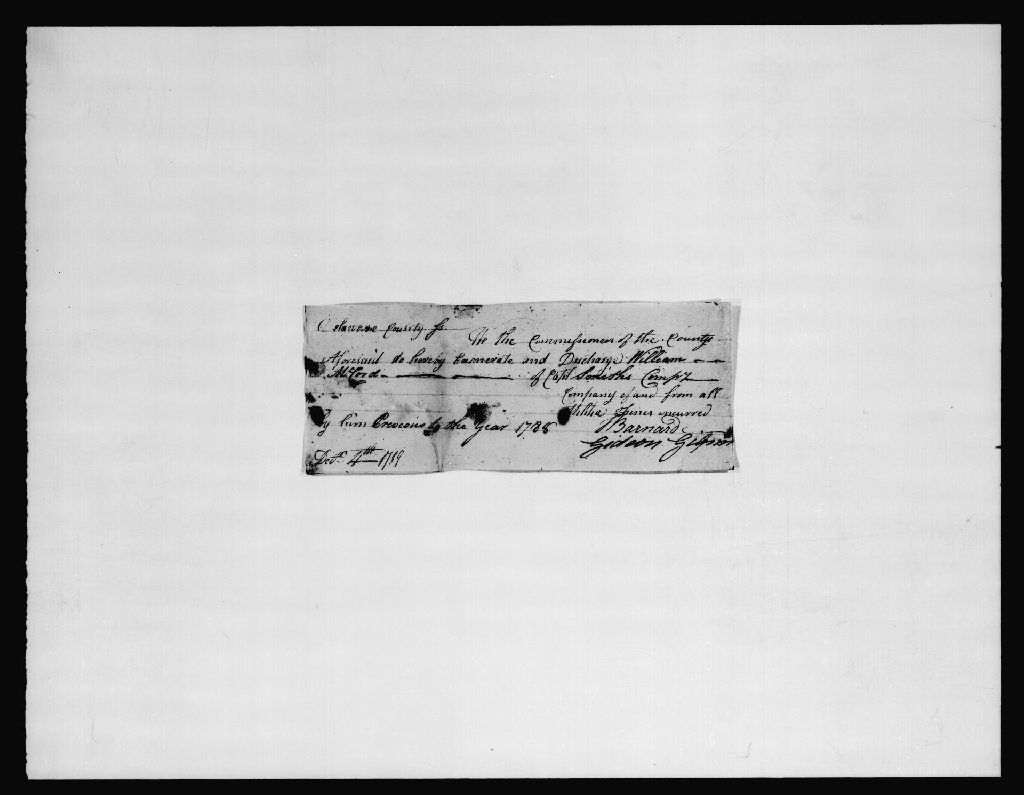 Delaware County Ss
We the Commissioners of the County
Aforesaid do hereby Exonerate and Discharge William
McCord of Capt Smiths Compy
Company of and from all
Militia fines incurred
by him Preveous to the Year 1788
Barnard
Gideon Gilpin
Decr. 4th 1789